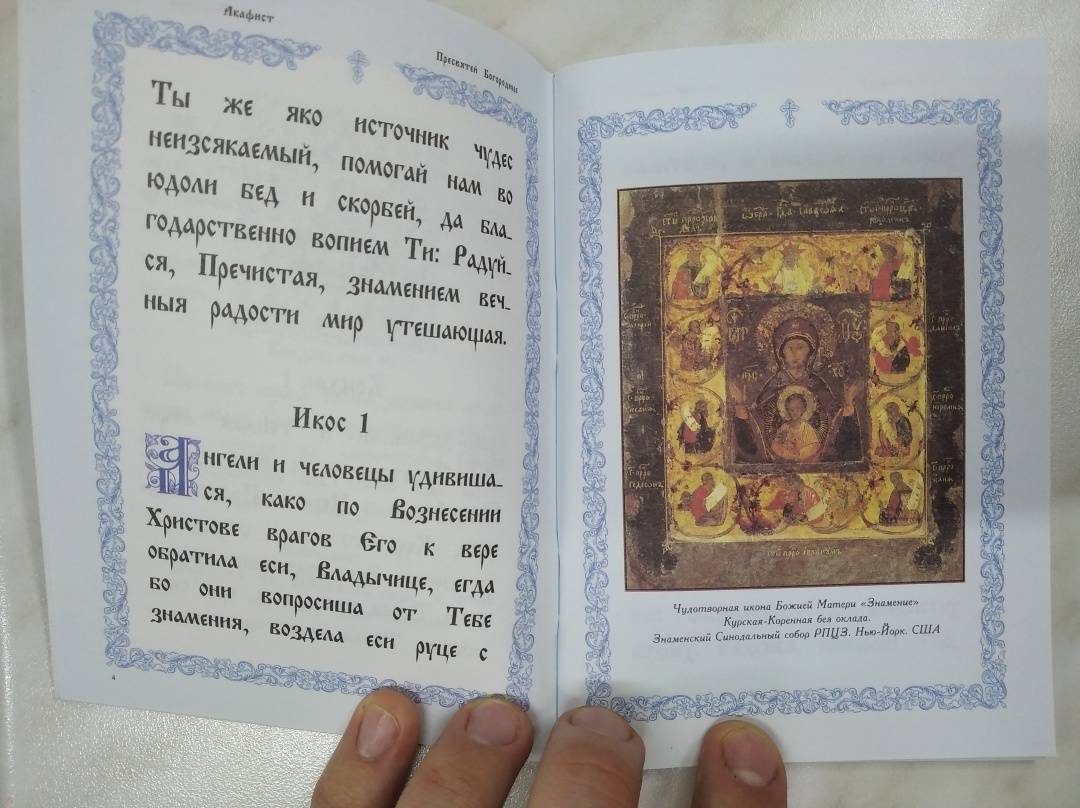 Акафист
Пресвятей Богородице
Ты же яко источник чудес
неизсякаемый, помогай нам во
юдоли бед и скорбей, да бла-
годарственно вопием Ти: Радуй-
ся, Пречистая, знамением веч-
ныя радости мир утешающая.
Икос 1
Ангели и человецы удивиша-
ся, како по Вознесении
Христове врагов Его к вере
обратила еси, Владычице, егда
бо они вопросиша от Тебе
знамения, воздела еси руце с
4
Чудотворная икона Божией Матери «Знамение»
Курская-Коренная без оклада.
Знаменский Синодальный собор РПЦЗ. Нью-Йорк. США